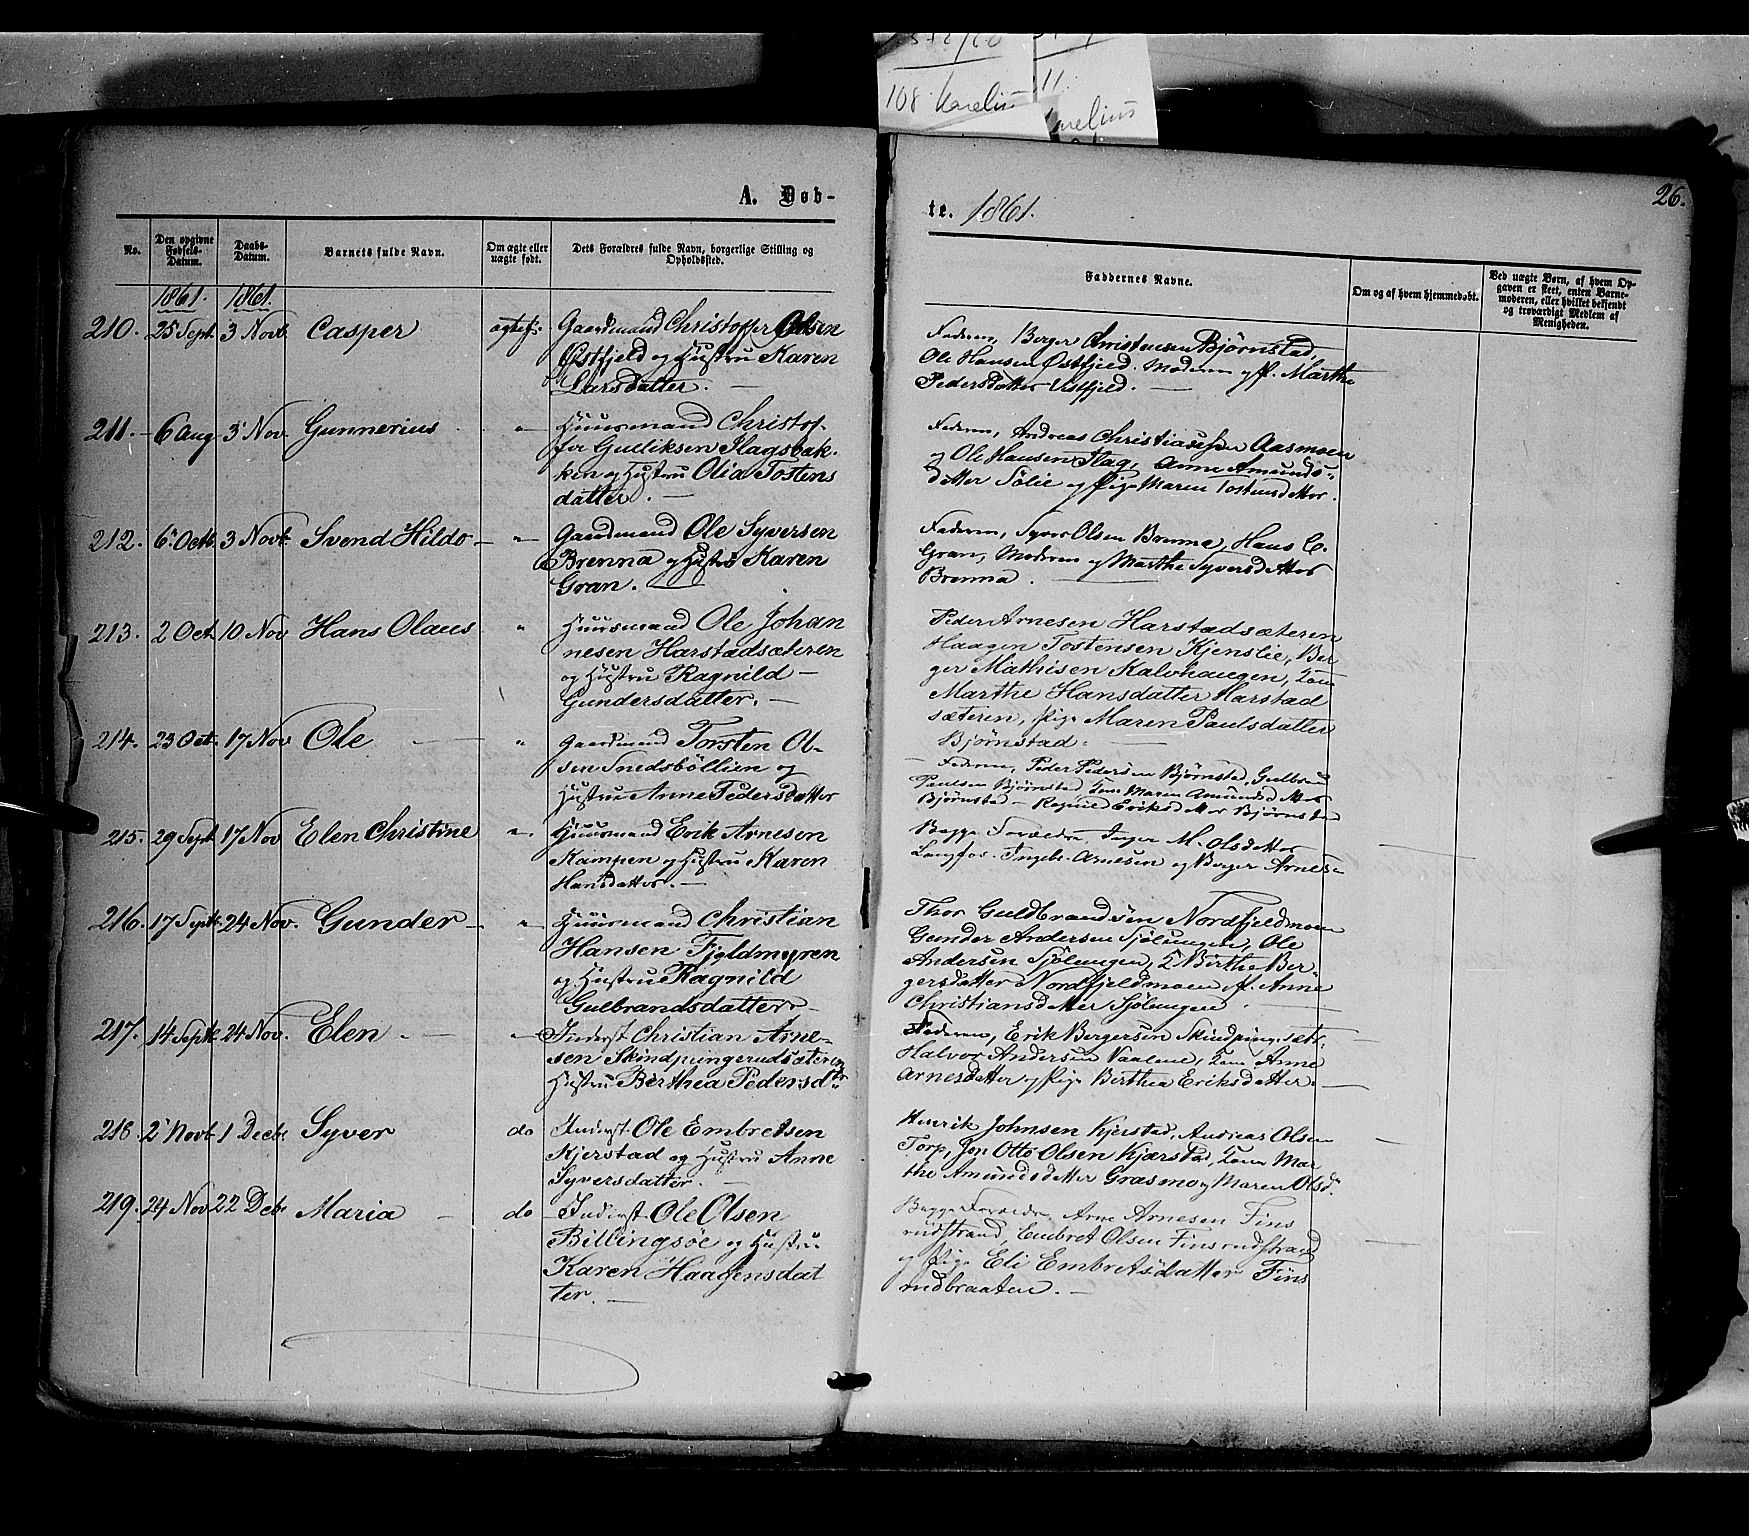 108. Karelius
11.
A. Døb-
No.
Den opgivne Fødsels-Datum.
Daabs-Datum.
Barnets fulde Navn.
Om ægte eller uægte født.
Dets Forældres fulde Navn, borgerlige Stilling og Opholdssted.
1861. 1861.
210. 25 Sept. 3 Novb. Casper ægtef: Gaardmand Christopher Olsen
Østfjeld og Hustru Karen
Larsdatter. —
211. 6 Aug 3' Nov. Gunnerius " Huusmand Christof-
fer Gulliksen Flagsbak-
ken og Hustru Olia Tostens
datter. —
212. 6' Octb. 3 Novb. Svend Hildo — " Gaardmand Ole Syversen
Brenna og Hustru Karen
Gran. —
213. 2 Oct. 10 Nov Hans Olaus " Huusmand Ole Johan
nesen Harstadsæteren
og Hustru Ragnild —
Gundersdatter. —
214. 23 Oct. 17 Nov Ole — " Gaardmand Torsten Ol-
sen Snedsböllien og
Hustru Anne Pedersdatter
215. 29 Sept 17 Nov Elen Christine " Huusmand Erik Arnesen
Kampen og Hustru Karen
Hansdatter. —
216. 17 Septb. 24 Nov. Gunder — " Huusmand Christian
Hansen Fjeldmyren
og Hustru Ragnild
Gulbrandsdatter —
217. 14 Septb. 24 Nov. Elen — " Inderst Christian Arne-
sen Skindpungerudsæteren
Hustru Berthea Pedersdtr
218. 2' Novb. 1 Decb. Syver do Inderst Ole Embretsen
Kjerstad og Hustru Anne
Syversdatter. —
219. 24 Nov 22 Decb. Maria — do Inderst Ole Olsen
Billingsöe og Hustru
Karen Haagensdat
ter. —
te. 1861. 26.
Faddernes Navne.
Om og af hvem hjemmedøbt.
Ved uægte Børn, af hvem Op-
gaven er skeet, enten Barne-
moderen, eller hvilket bekjendt
og troværdigt Medlem af
Menigheden.
Faderen, Berger Christensen Bjørnstad,
Ole Hansen Østfjeld. Moderen og P. Marthe
Pedersdatter Vestfjeld. —
Faderen, Andreas Christiansen Aasmoen
og Ole Hansen Flag, Anne Amunds-
datter Sölie og Pige Maren Tostensdatter.
Faderen, Syver Olsen Brenna, Hans C.
Gran, Moderen og Marthe Syversdatter
Brenna. —
Peder Arnesen Harstadsæteren
Haagen Tostensen Kjenslie, Ber
ger Mathisen Kalvhaugen, Kone
Marthe Hansdatter Harstad
sæteren, Pige Maren Paulsdatter
Bjørnstad. —
Faderen, Peder Pedersen Bjørnstad, Gulbrand
Paulsen Bjørnstad Kone Maren Amundsdatter
Bjørnstad — Ragnild Eriksdatter Bjørnstad
Begge Forældre, Inger M. Olsdatter
Langfos. Arnesen og Berger Arnes-
Thor Guldbrandsen Nordfjeldmoen
Gunder Andersen Sjølungen, Ole
Andersen Sjølungen, K Birthe Ber-
gersdatter Nordfjeldmoen P. Anne
Christiansdatter Sjølungen
Faderen, Erik Bergersen Skindpung.sæt.
Halvor Andersen Vaalene, Kone Anne
Arnesdatter og Pige Berthea Eriksdatter. —
Henrik Johnsen Kjerstad, Andreas Olsen
Torp, Jon Otto Olsen Kjærstad, Kone Mar
the Amundsdatter Græsmo og Maren Olsd.
Begge Forældre, Arne Arnesen Fins
rudstrand, Embret Olsen Finsrudstrand
og Pige Eli Embretsdatter Fins
rudbraaten. —